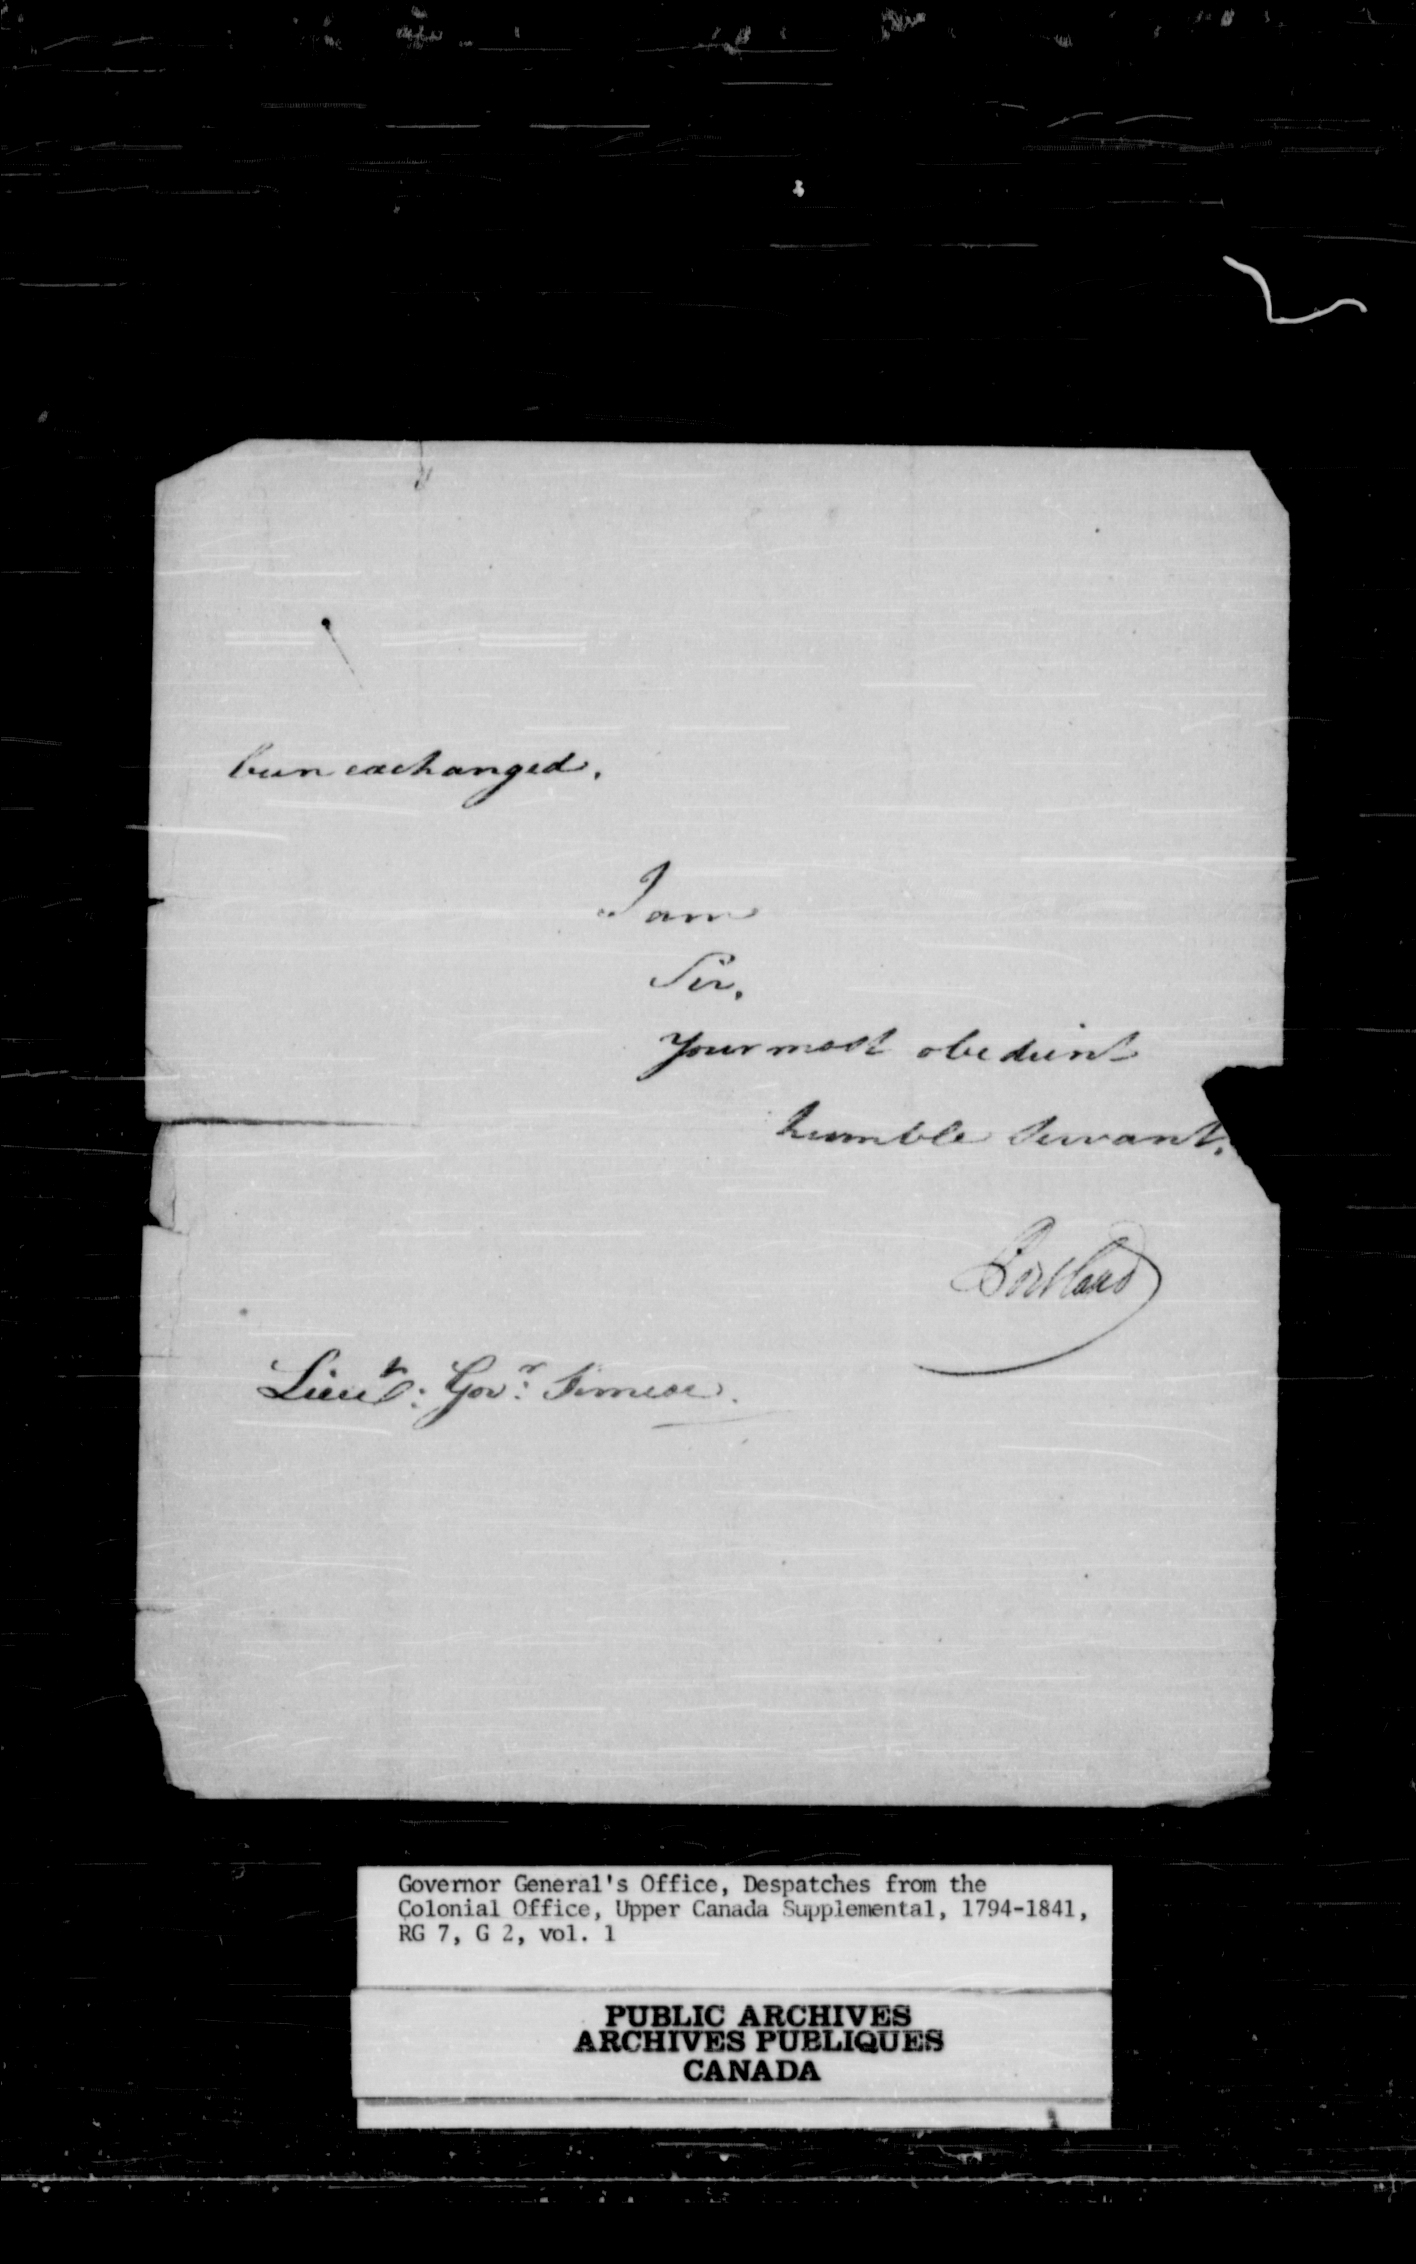 been exchanged.
I am
Sir,
Your most obedient
humble Servant,
Portland
Lieut: Govr: Simcoe.
Governor General's Office, Despatches from the
Colonial Office, Upper Canada Supplemental, 1794-1841,
RG 7, G 2, vol. 1
PUBLIC ARCHIVES
ARCHIVES PUBLIQUES
CANADA